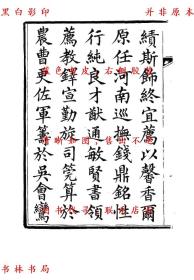 黑白影印
并非原本
績斯歸終宜薦以馨香爾
原任河南巡撫錢鼎銘性
行純良才猷通敏賢書領
薦教鐸宣勤旋司筦算於
農曹更佐軍籌於吳會鸞
书林书局